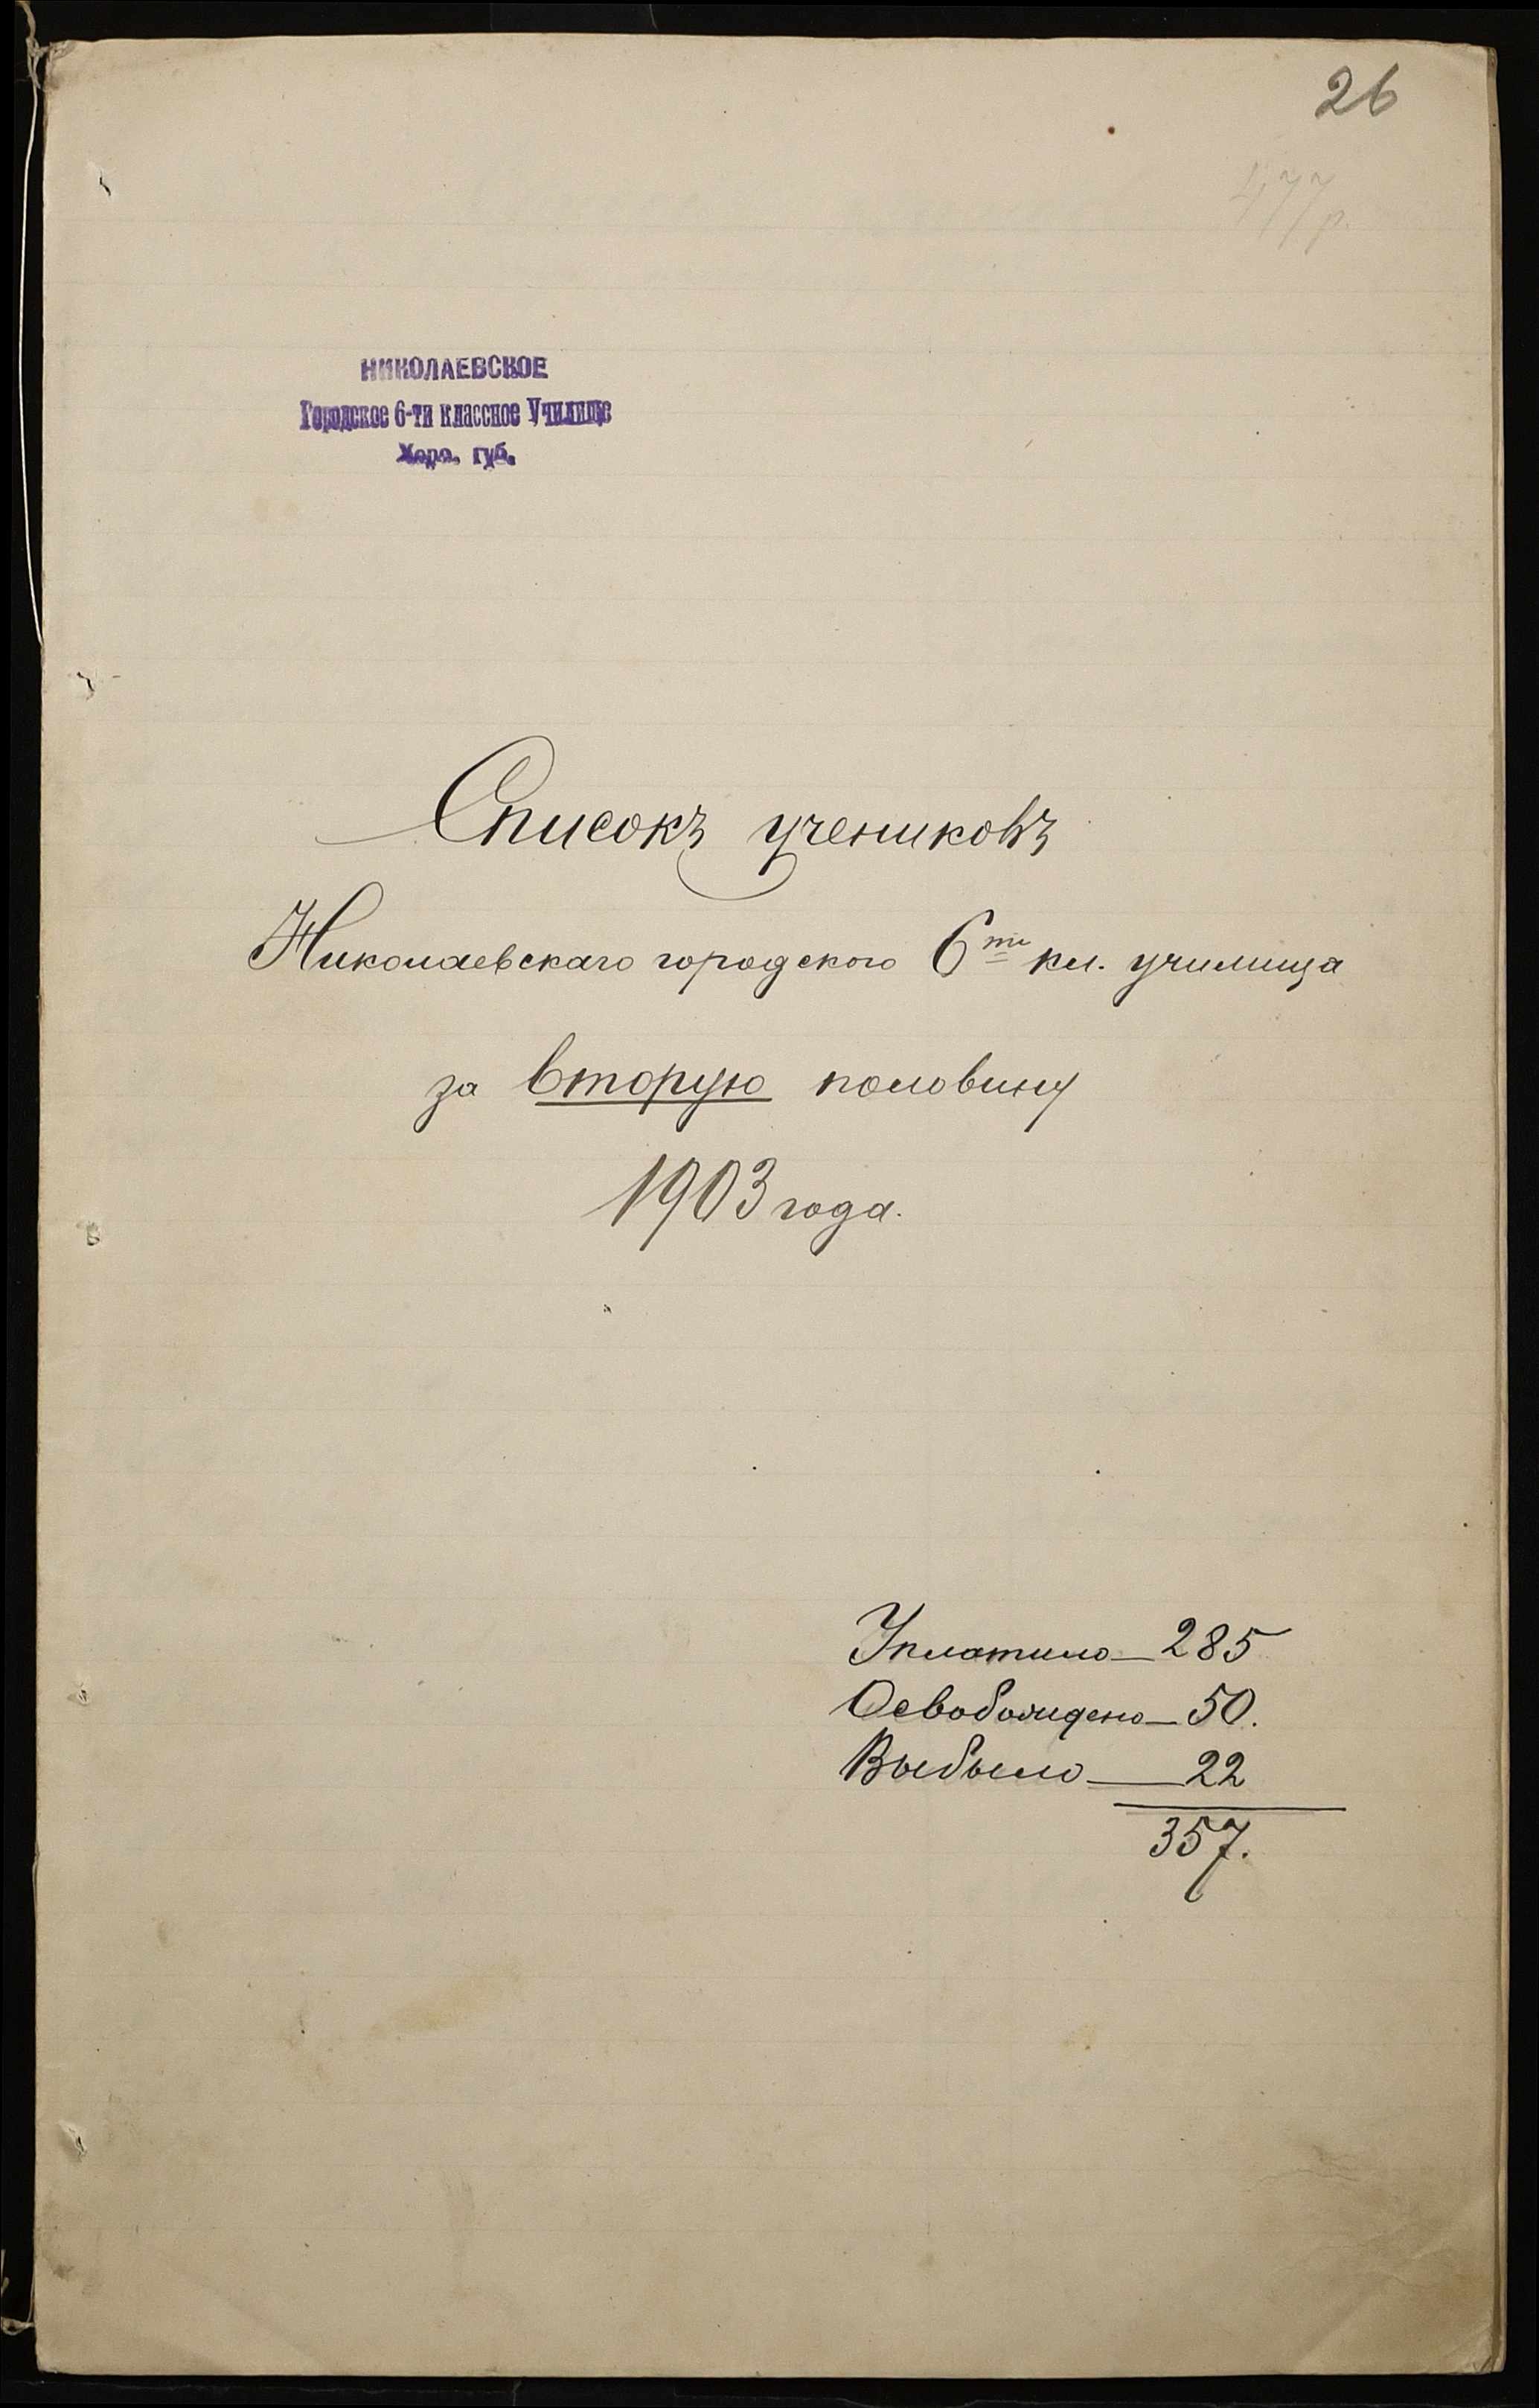 26
477 р.
НИКОЛАЕВСКОЕ
Городское 6-ти классное Училище
Херс. губ.
Списокъ учениковъ
Николаевскаго городского 6ти кл. училища
за вторую половину
1903 года.
Уплатило — 285
Освобождено — 50.
Выбыло — 22
357.